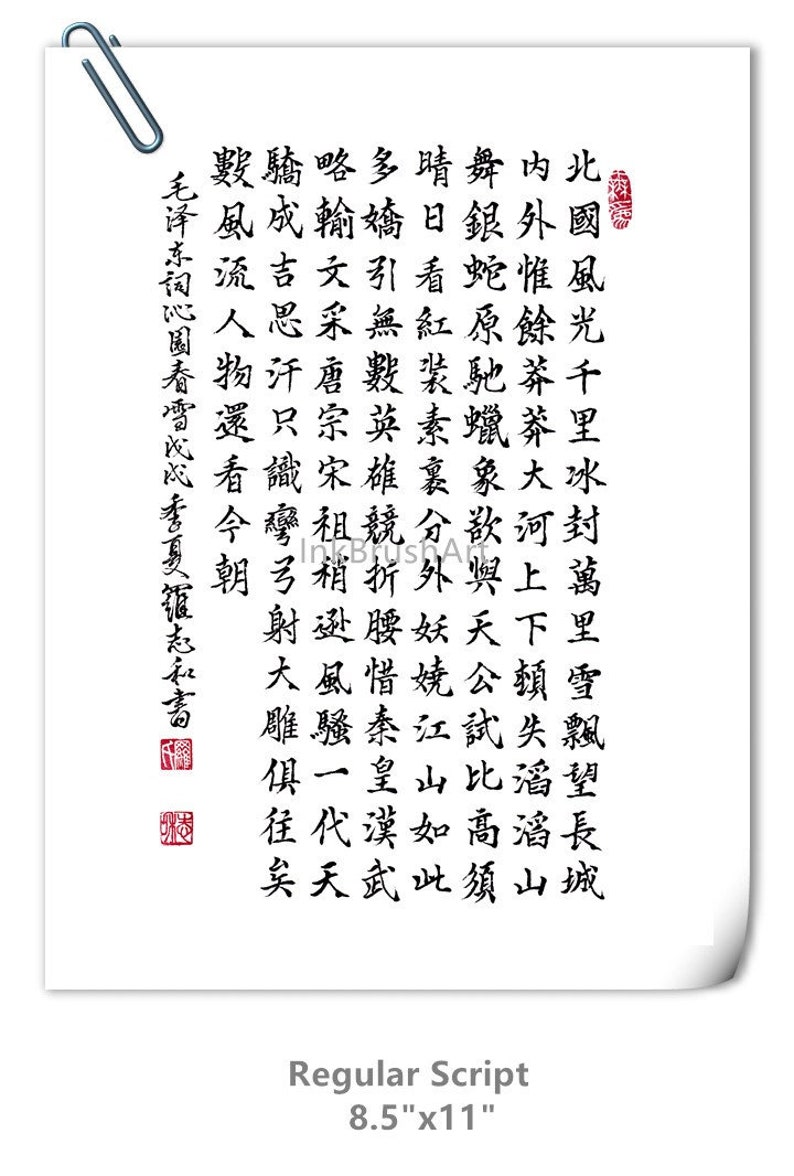 北國風光千里冰封萬里雪飄望長城
内外惟餘莽莽大河上下頓失滔滔山
舞銀蛇原馳蠟象欲與天公試比高須
晴日看紅裝素裹分外妖嬈江山如此
多嬌引無數英雄競折腰惜秦皇漢武
略輸文采唐宗宋祖稍遜風騷一代天
驕成吉思汗只識彎弓射大雕俱往矣
數風流人物還看今朝
毛泽东詞沁園春雪戊戌季夏羅志和書
羅氏
志和
InkBrushArt
Regular Script
8.5"x11"